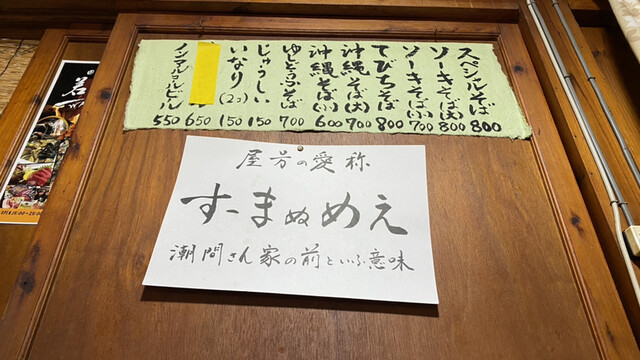 スペシャルそば 800
ソーキそば(大) 800
ソーキそば(小) 700
てびちそば 800
沖縄そば(大) 700
沖縄そば(小) 600
ゆしどうふそば 700
じゅうしい 150
いなり(2コ) 150
650
ノンアルコールビール 550
屋号の愛称
すーまぬめえ
潮間さん家の前といふ意味